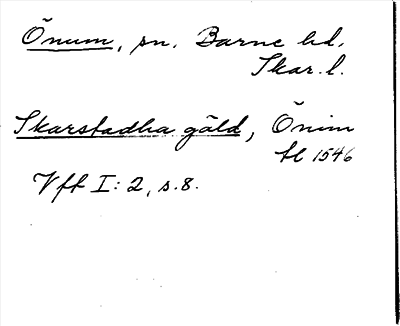 Önum, sn. Barne hd.
Skar. l.
Skarstadha gäld, Önim
tl 1546
Vft I: 2, s. 8.